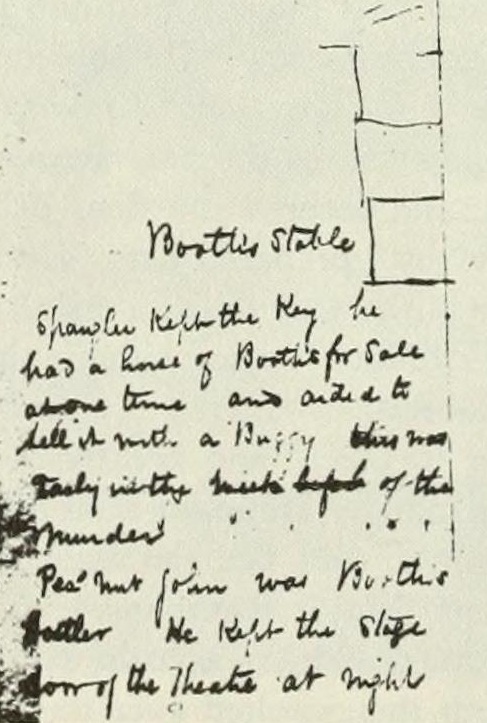 Booth's Stable
Spangler Kept the Key he
had a horse of Booth's for Sale
at one time and aided to
sell it with a Buggy this was
Early in the week of the
Murder
Pea nut John was Booth's
Hostler He Kept the Stage
door of the Theatre at night